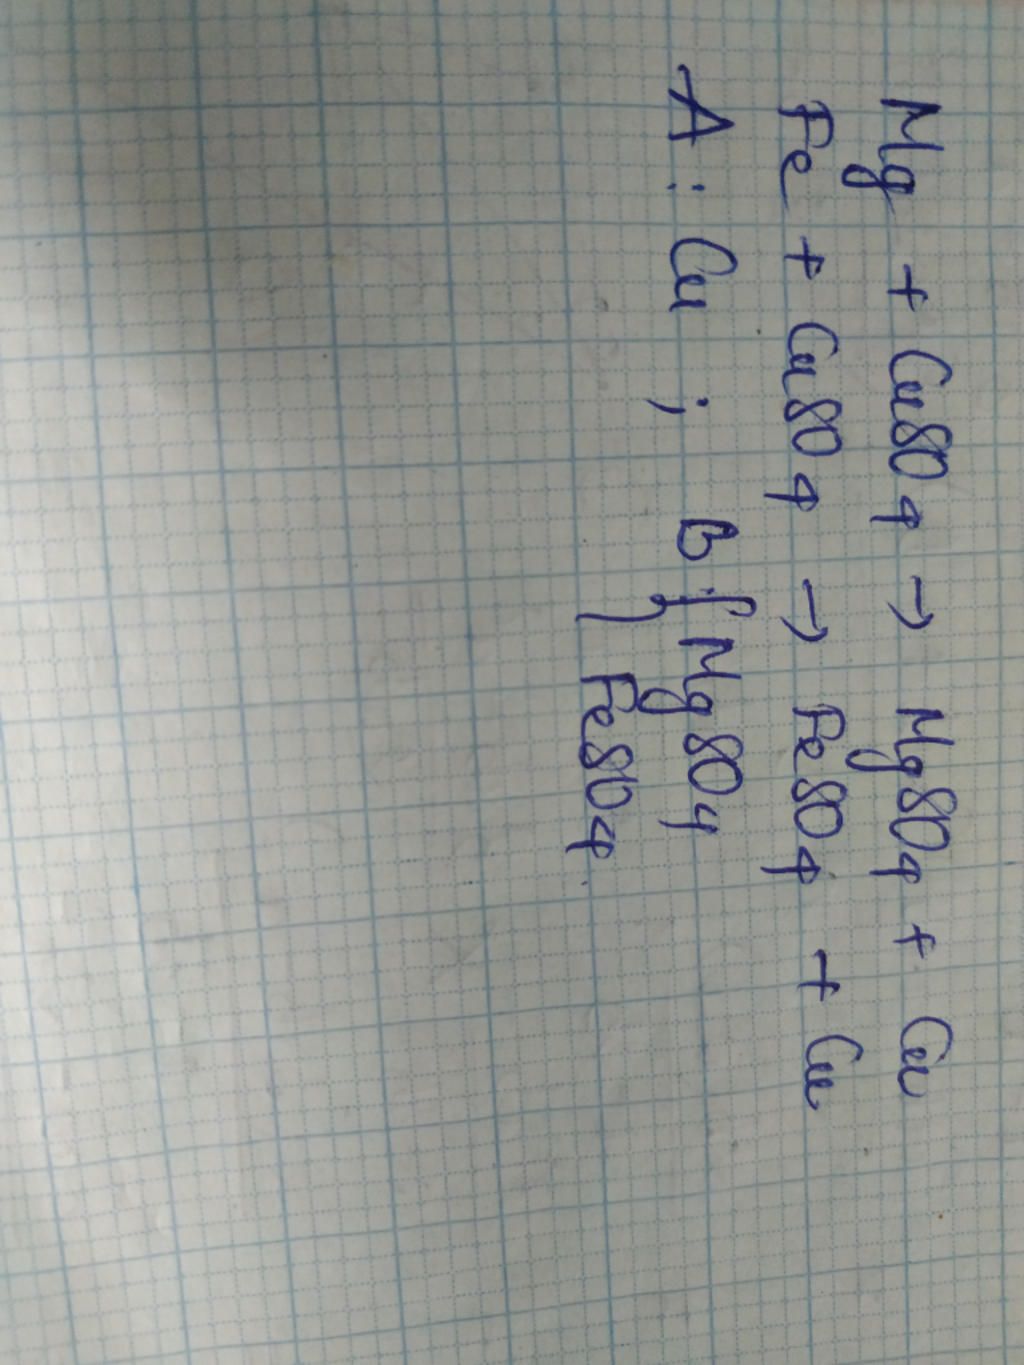 Mg + CuSO4 → MgSO4 + Cu
Fe + CuSO4 → FeSO4 + Cu
A : Cu ; B : { MgSO4
FeSO4